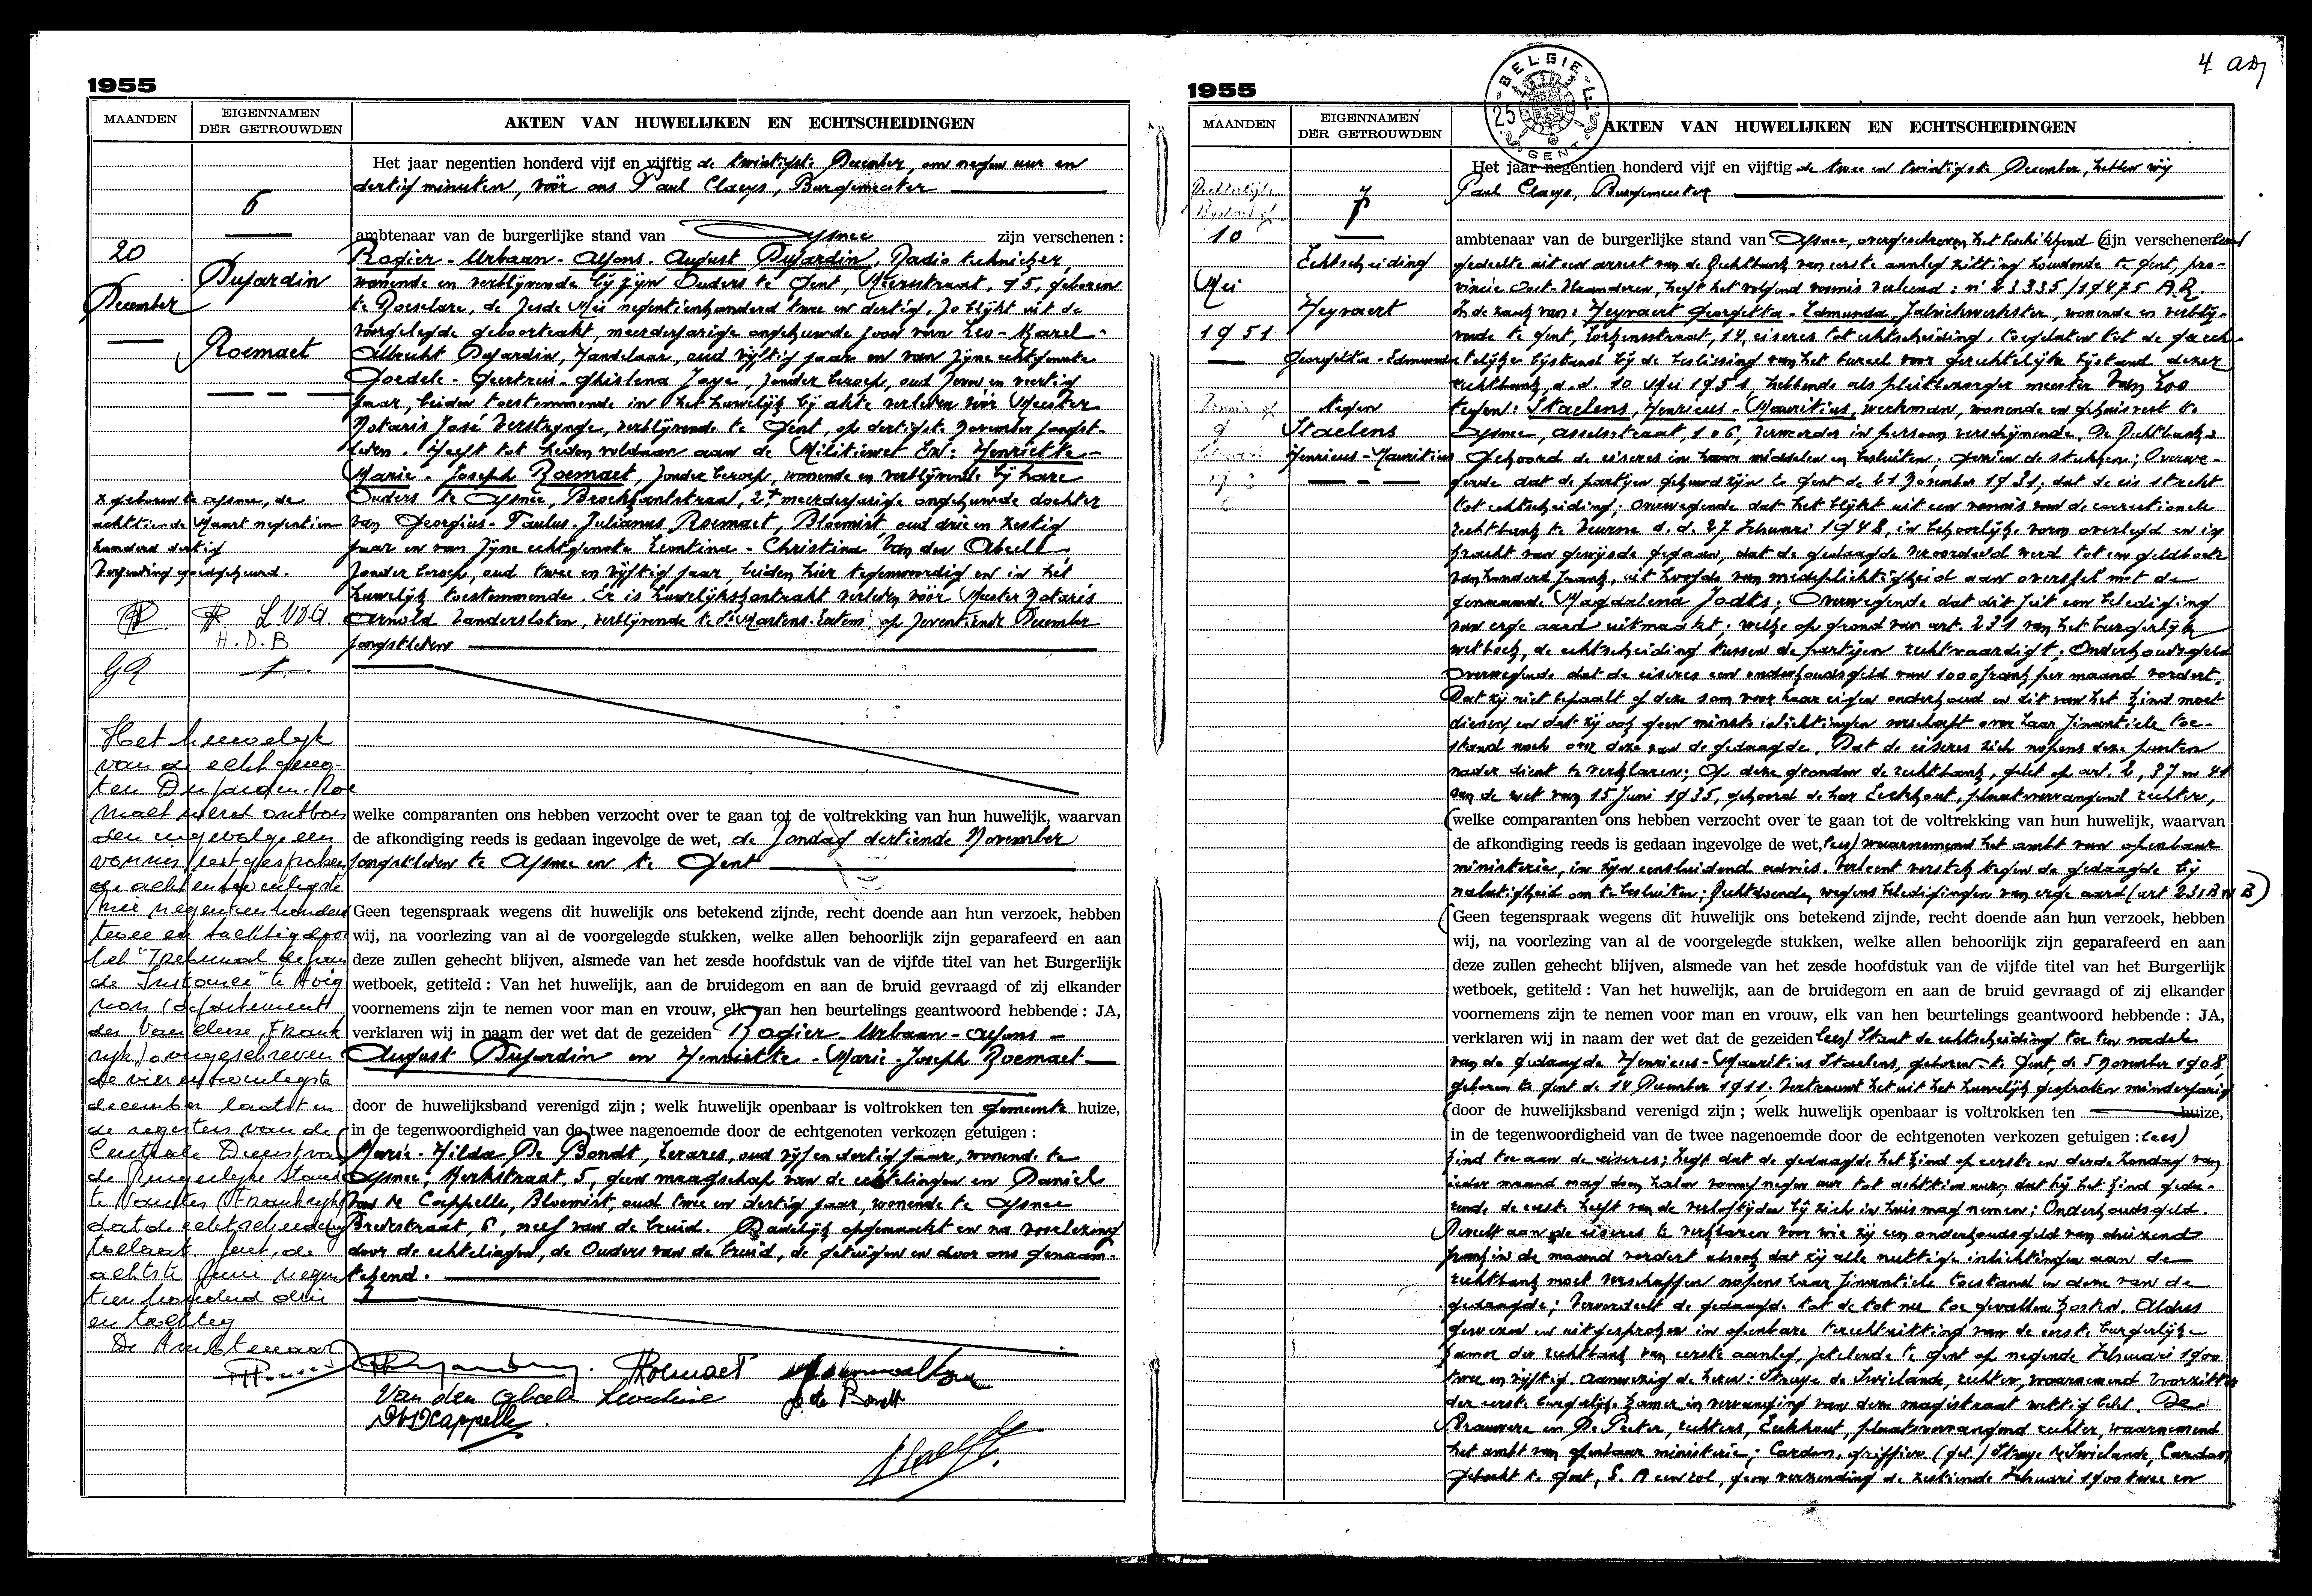 1955
MAANDEN
EIGENNAMEN
DER GETROUWDEN
AKTEN VAN HUWELIJKEN EN ECHTSCHEIDINGEN
6
20
December
Dujardin
Roemaet
Het jaar negentien honderd vijf en vijftig de twintigste December, om negen uur en
dertig minuten, vóór ons Paul Claeys, Burgemeester
ambtenaar van de burgerlijke stand van Afsnee zijn verschenen :
Rogier-Urbaan-Alfons-August Dujardin, Radio technieker,
wonende en verblijvende bij zijn Ouders te Gent, Meersstraat, 95, geboren
te Roeselare, de zesde Mei negentienhonderd twee en dertig, zo blijkt uit de
voorgelegde geboorteakt, meerderjarige ongehuwde zoon van Leo-Karel-
Albrecht Dujardin, Handelaar, oud vijftig jaar en van zijne echtgenote
Goedele-Geertrui-Ghislena Jaye, zonder beroep, oud zeven en veertig
jaar, beiden toestemmende in het huwelijk bij akte verleden vóór Meester
Notaris José Verstrynge, verblijvende te Gent, op dertigste November jongst-
leden. Heeft tot heden voldaan aan de Militiewet En: Henriette-
Marie-Joseph Roemaet, zonder beroep, wonende en verblijvende bij hare
Ouders te Afsnee, Broekkantstraat, 27, meerderjarige ongehuwde dochter
van Georgius-Paulus-Julianus Roemaet, Bloemist, oud drie en zestig
jaar en van zijne echtgenote Leontina-Christina Van den Abeele
zonder beroep, oud twee en vijftig jaar, beiden hier tegenwoordig en in het
huwelijk toestemmende. Er is huwelijkskontrakt verleden vóór Meester Notaris
Arnold Vandersloten, verblijvende te St Martens-Latem op zeventiende December
jongstleden
x geboren te Afsnee, de
achttiende Maart negentien
honderd dertig
Verzending goedgekeurd.
L.VDA
H.D.B
GR
welke comparanten ons hebben verzocht over te gaan tot de voltrekking van hun huwelijk, waarvan
de afkondiging reeds is gedaan ingevolge de wet, de zondag dertiende November
jongstleden te Afsnee en te Gent
Geen tegenspraak wegens dit huwelijk ons betekend zijnde, recht doende aan hun verzoek, hebben
wij, na voorlezing van al de voorgelegde stukken, welke allen behoorlijk zijn geparafeerd en aan
deze zullen gehecht blijven, alsmede van het zesde hoofdstuk van de vijfde titel van het Burgerlijk
wetboek, getiteld : Van het huwelijk, aan de bruidegom en aan de bruid gevraagd of zij elkander
voornemens zijn te nemen voor man en vrouw, elk van hen beurtelings geantwoord hebbende : JA,
verklaren wij in naam der wet dat de gezeiden Rogier-Urbaan-Alfons-
August Dujardin en Henriette-Marie-Joseph Roemaet
door de huwelijksband verenigd zijn ; welk huwelijk openbaar is voltrokken ten gemeente huize,
in de tegenwoordigheid van de twee nagenoemde door de echtgenoten verkozen getuigen :
Marie-Hilda De Bondt, Lerares, oud vijf en dertig jaar, wonende te
Afsnee, Kerkstraat, 5, geen maagschap van de echtelingen en Daniël
Van de Cappelle, Bloemist, oud twee en dertig jaar, wonende te Afsnee
Beekstraat, 6, neef van de bruid. Dadelijk opgemaakt en na voorlezing
door de echtelingen, de Ouders van de bruid, de getuigen en door ons genaam-
tekend.
Het huwelijk
van de echtgeno-
ten Dujardin-Roe
maet werd ontbon
den ingevolge een
vonnis uitgesproken
de achtentwintigste
mei negentienhonderd
twee en tachtig door
het "Tribunal de Gran
de Instance" te Avig
non (departement
der Vaucluse, Frank
rijk) overgeschreven
de vierentwintigste
december laatst in
de registers van de
Centrale Dienst van
de Burgerlijke Stand
te Nantes (Frankrijk)
dat de echtscheiding
toelaat. Gent, de
achtste Juni negen
tien honderd drie
en tachtig
De Ambtenaar
Roemaet
Van den Abeele Leontine
de Bondt
VdCappelle
4 
1955
BELGIE
25
GENT
MAANDEN
EIGENNAMEN
DER GETROUWDEN
AKTEN VAN HUWELIJKEN EN ECHTSCHEIDINGEN
7
Rechterlijke
Bijstand
10
Mei
1951
Echtscheiding
Heyvaert
Georgetta-Edmunda
tegen
Staelens
Henricus-Mauritius
Vonnis
9
Februari
Het jaar negentien honderd vijf en vijftig de twee en twintigste December, hebben wij
Paul Claeys, Burgemeester
ambtenaar van de burgerlijke stand van Afsnee, overgeschreven het beschikkend (zijn verschenen lees)
gedeelte uit een arrest van de Rechtbank van eerste aanleg zitting houdende te Gent, pro-
vincie Oost-Vlaanderen, heeft het volgend vonnis verleend : n° 23335/19475 A.R.
In de zaak van: Heyvaert Georgetta-Edmunda, fabriekwerkster, wonende en verblij-
vende te Gent, 14, eiseres tot echtscheiding, toegelaten tot de gerech-
telijke bijstand bij de beslissing van het bureel voor gerechtelijke bijstand dezer
rechtbank, d.d. 10 Mei 1951, hebbende als pleitbezorger meester Van Loo
tegen: Staelens, Henricus-Mauritius, werkman, wonende en gehuisvest te
Afsnee, Asselsstraat, 106, verweerder in persoon verschijnende. De Rechtbank,
Gehoord de eiseres in haar middelen en besluiten; Gezien de stukken; Overwe-
gende dat de partijen gehuwd zijn te Gent de 21 November 1931; dat de eis strekt
tot echtscheiding; Overwegende dat het blijkt uit een vonnis van de correctionele
rechtbank te Veurne d.d. 27 Februari 1948, in behoorlijke vorm overlegd en in
kracht van gewijsde gegaan, dat de gedaagde veroordeeld werd tot een geldboete
van honderd frank, uit hoofde van medeplichtigheid aan overspel met de
genaamde Magdalena Jodts; Overwegende dat dit feit een belediging
van erge aard uitmaakt; welke op grond van art. 231 van het burgerlijk
wetboek, de echtscheiding tussen de partijen rechtvaardigt; Onderhoudsgeld
Overwegende dat de eiseres een onderhoudsgeld van 1000 frank per maand vordert.
Dat zij niet bepaalt of deze som voor haar eigen onderhoud en dit van het kind moet
dienen, en dat zij ook geen minste inlichtingen verschaft over haar financiele toe-
stand noch over deze van de gedaagde. Dat de eiseres zich nopens deze punten
nader dient te verklaren; Op deze gronden de rechtbank, gelet op art. 2, 37 en 41
van de wet van 15 Juni 1935, gehoord de heer Eeckhout, plaatsvervangend rechter,
(welke comparanten ons hebben verzocht over te gaan tot de voltrekking van hun huwelijk, waarvan
de afkondiging reeds is gedaan ingevolge de wet, lees) waarnemend het ambt van openbaar
ministerie, in zijn eensluidend advies. Verleent verstek tegen de gedaagde bij
nalatigheid om te besluiten; Rechtdoende, wegens beledigingen van erge aard (art 231 B W B)
(Geen tegenspraak wegens dit huwelijk ons betekend zijnde, recht doende aan hun verzoek, hebben
wij, na voorlezing van al de voorgelegde stukken, welke allen behoorlijk zijn geparafeerd en aan
deze zullen gehecht blijven, alsmede van het zesde hoofdstuk van de vijfde titel van het Burgerlijk
wetboek, getiteld : Van het huwelijk, aan de bruidegom en aan de bruid gevraagd of zij elkander
voornemens zijn te nemen voor man en vrouw, elk van hen beurtelings geantwoord hebbende : JA,
verklaren wij in naam der wet dat de gezeiden lees) Staat de echtscheiding toe ten nadele
van de gedaagde Henricus-Mauritius Staelens, geboren te Gent, de 5 November 1908
geboren te Gent de 14 December 1911. Vertrouwt het uit het huwelijk gesproten minderjarig
(door de huwelijksband verenigd zijn ; welk huwelijk openbaar is voltrokken ten huize,
in de tegenwoordigheid van de twee nagenoemde door de echtgenoten verkozen getuigen : lees)
kind toe aan de eiseres; zegt dat de gedaagde het kind op eerste en derde Zondag van
ieder maand mag doen halen vanaf negen uur tot achttien uur; dat hij het kind gedu-
rende de eerste helft van de verloftijden bij zich in huis mag nemen; Onderhoudsgeld.
Beveelt aan de eiseres te verklaren voor wie zij een onderhoudsgeld van duizend
frank in de maand vordert alsook dat zij alle nuttige inlichtingen aan de
rechtbank moet verschaffen nopens haar financiele toestand en deze van de
gedaagde; Veroordeelt de gedaagde tot de tot nu toe gevallen kosten. Aldus
gewezen en uitgesproken in openbare terechtzitting van de eerste burgerlijke
kamer der rechtbank van eerste aanleg, zetelende te Gent op negende Februari 1900
twee en vijftig. Aanwezig de heren: Struye de Swielande, rechter, waarnemend voorzitter
der eerste burgerlijke kamer in vervanging van deze magistraat wettig belet. De
Brauwere en De Pester, rechters, Eeckhout, plaatsvervangend rechter, waarnemend
het ambt van openbaar ministerie; Cardon, griffier. (get.) Struye de Swielande, Cardon
Geboekt te Gent, S. A een rol, geen verzending de zestiende Februari 1900 twee en